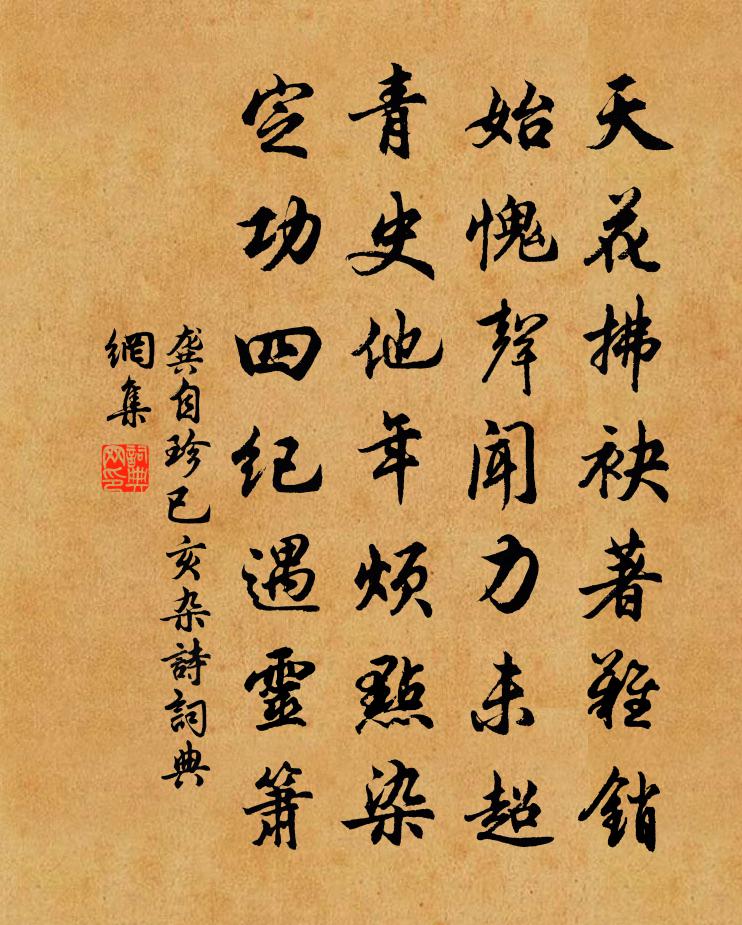 天花拂袂著難銷
始愧聲聞力未超
青史他年煩點染
定功四纪遇靈簫
龔自珍己亥杂詩詞典
網集
詞典
网印